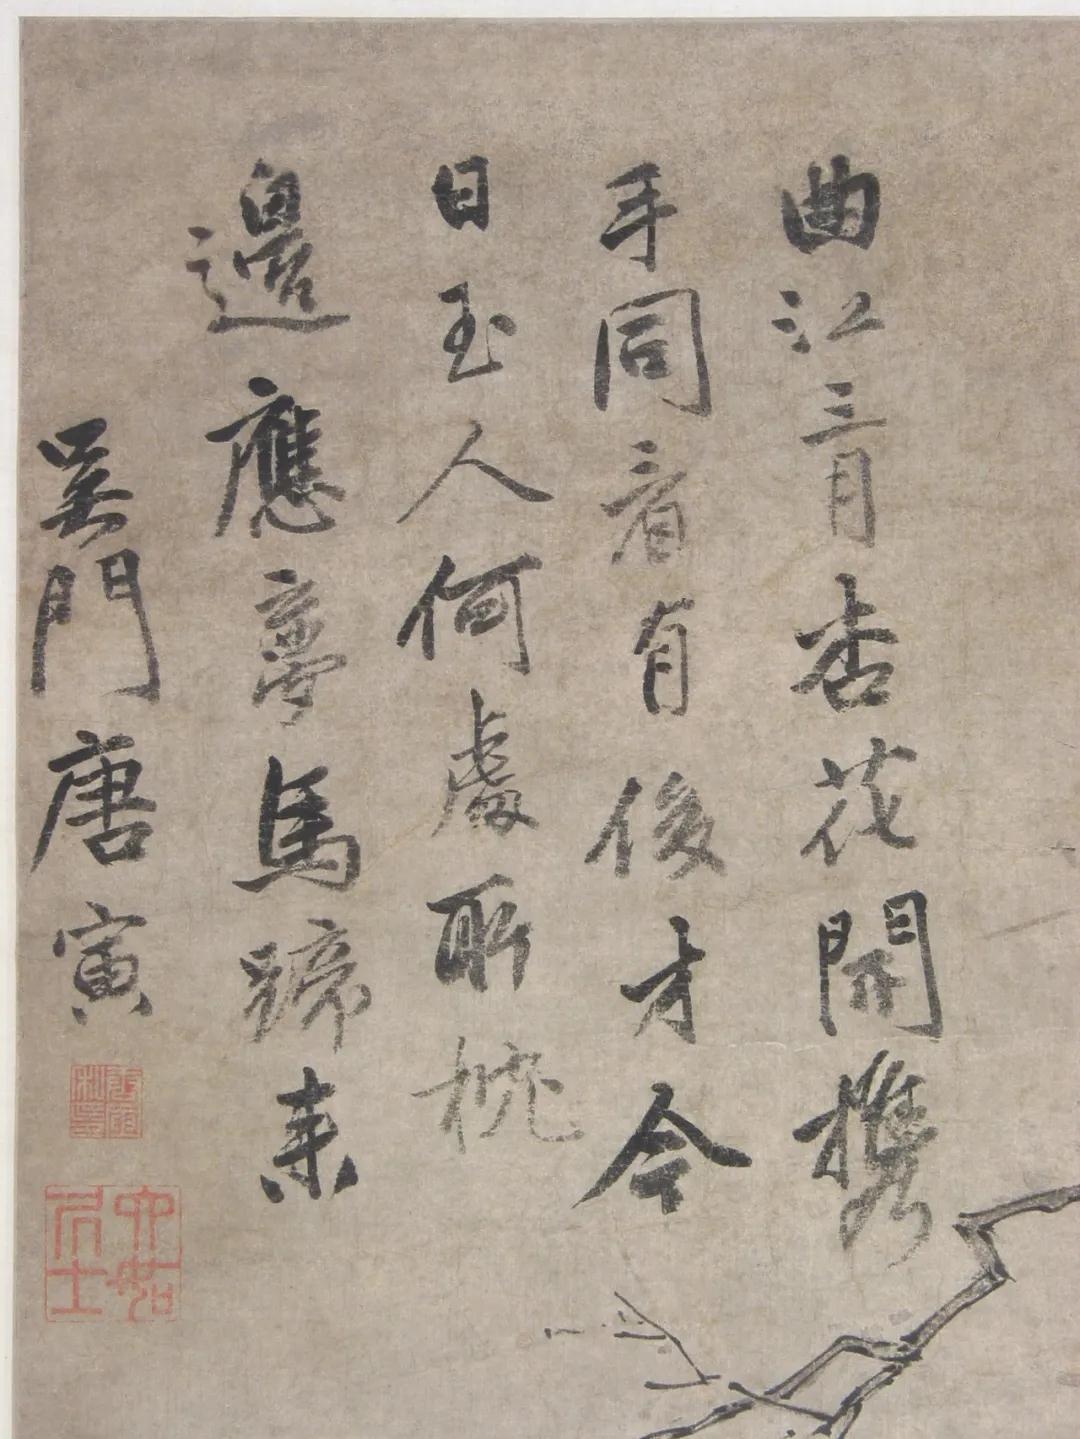 曲江三月杏花開携
手同看有俊才今
日玉人何處所枕
邊應夢馬蹄来
吳門唐寅
六如居士